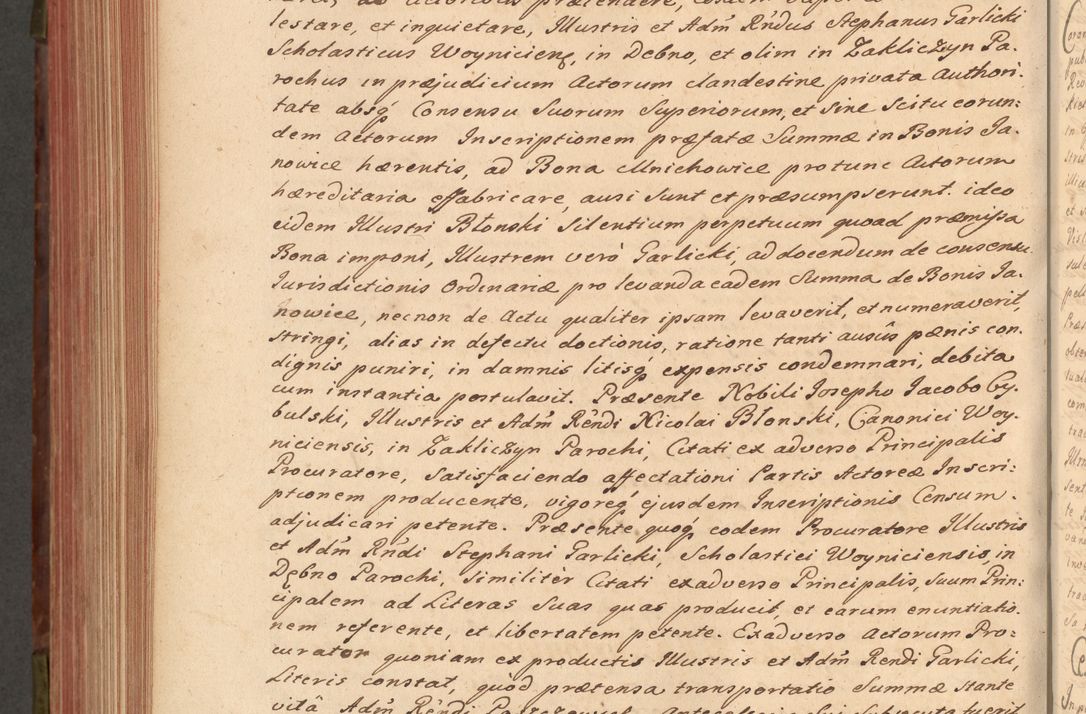 lestare, et inquietare, Illustris et Adm̃ Rñdus Stephanus Garlicki
Scholasticus Woyniciens, in Debno, et olim in Zakliczyn Pa-
rochus in præjudicium Actorum clandestine privata Authori-
tate absq̃ Consensu Suorum Superiorum, et Sine Scitu eorun=
dem Actorum Inscriptionem præfatæ Summæ in Bonis Ja-
nowice hærentis, ad Bona Mnichowice pro tunc Actorum
hæreditaria effabricare, ausi Sunt et præsumpserunt. ideo
eidem Illustri Błonski Silentium perpetuum quoad præmissa
Bona imponi, Illustrem verò Garlicki, ad docendum de consensu
Jurisdictionis Ordinariæ pro levanda eadem Summa de Bonis Ja-
nowice, necnon de Actu qualiter ipsam levaverit, et numeraverit,
stringi, alias in defectu doctionis, ratione tanti ausûs pænis con-
dignis puniri, in damnis litisq̃ expensis condemnari, debita
cum instantia postulavit. Præsente Nobili Josepho Jacobo Cy-
bulski, Illustris et Adm̃ Rñdi Nicolai Błonski, Canonici Woy-
niciensis, in Zakliczyn Parochi, Citati ex adverso Principalis
Procuratore, Satisfaciendo affectationi Partis Actoreæ Inscri=
ptionem producente, vigoreq̃ ejusdem Inscriptionis Censum
adjudicari petente. Præsente quoq̃ eodem Procuratore Illustris
et Adm̃ Rñdi Stephani Garlicki, Scholastici Woyniciensis, in
Dębno Parochi, Similitèr Citati exadverso Principalis, Suum Prin=
cipalem ad Literas Suas quas producit, et earum enuntiatio-
nem referente, et libertatem petente. Exàdverso Actorum Pro=
curator quoniam ex productis Illustris et Adm̃ Rendi Garlicki,
Literis constat, quod prætensa transportatio Summæ Stante
vitâ Adm̃ Rẽndi